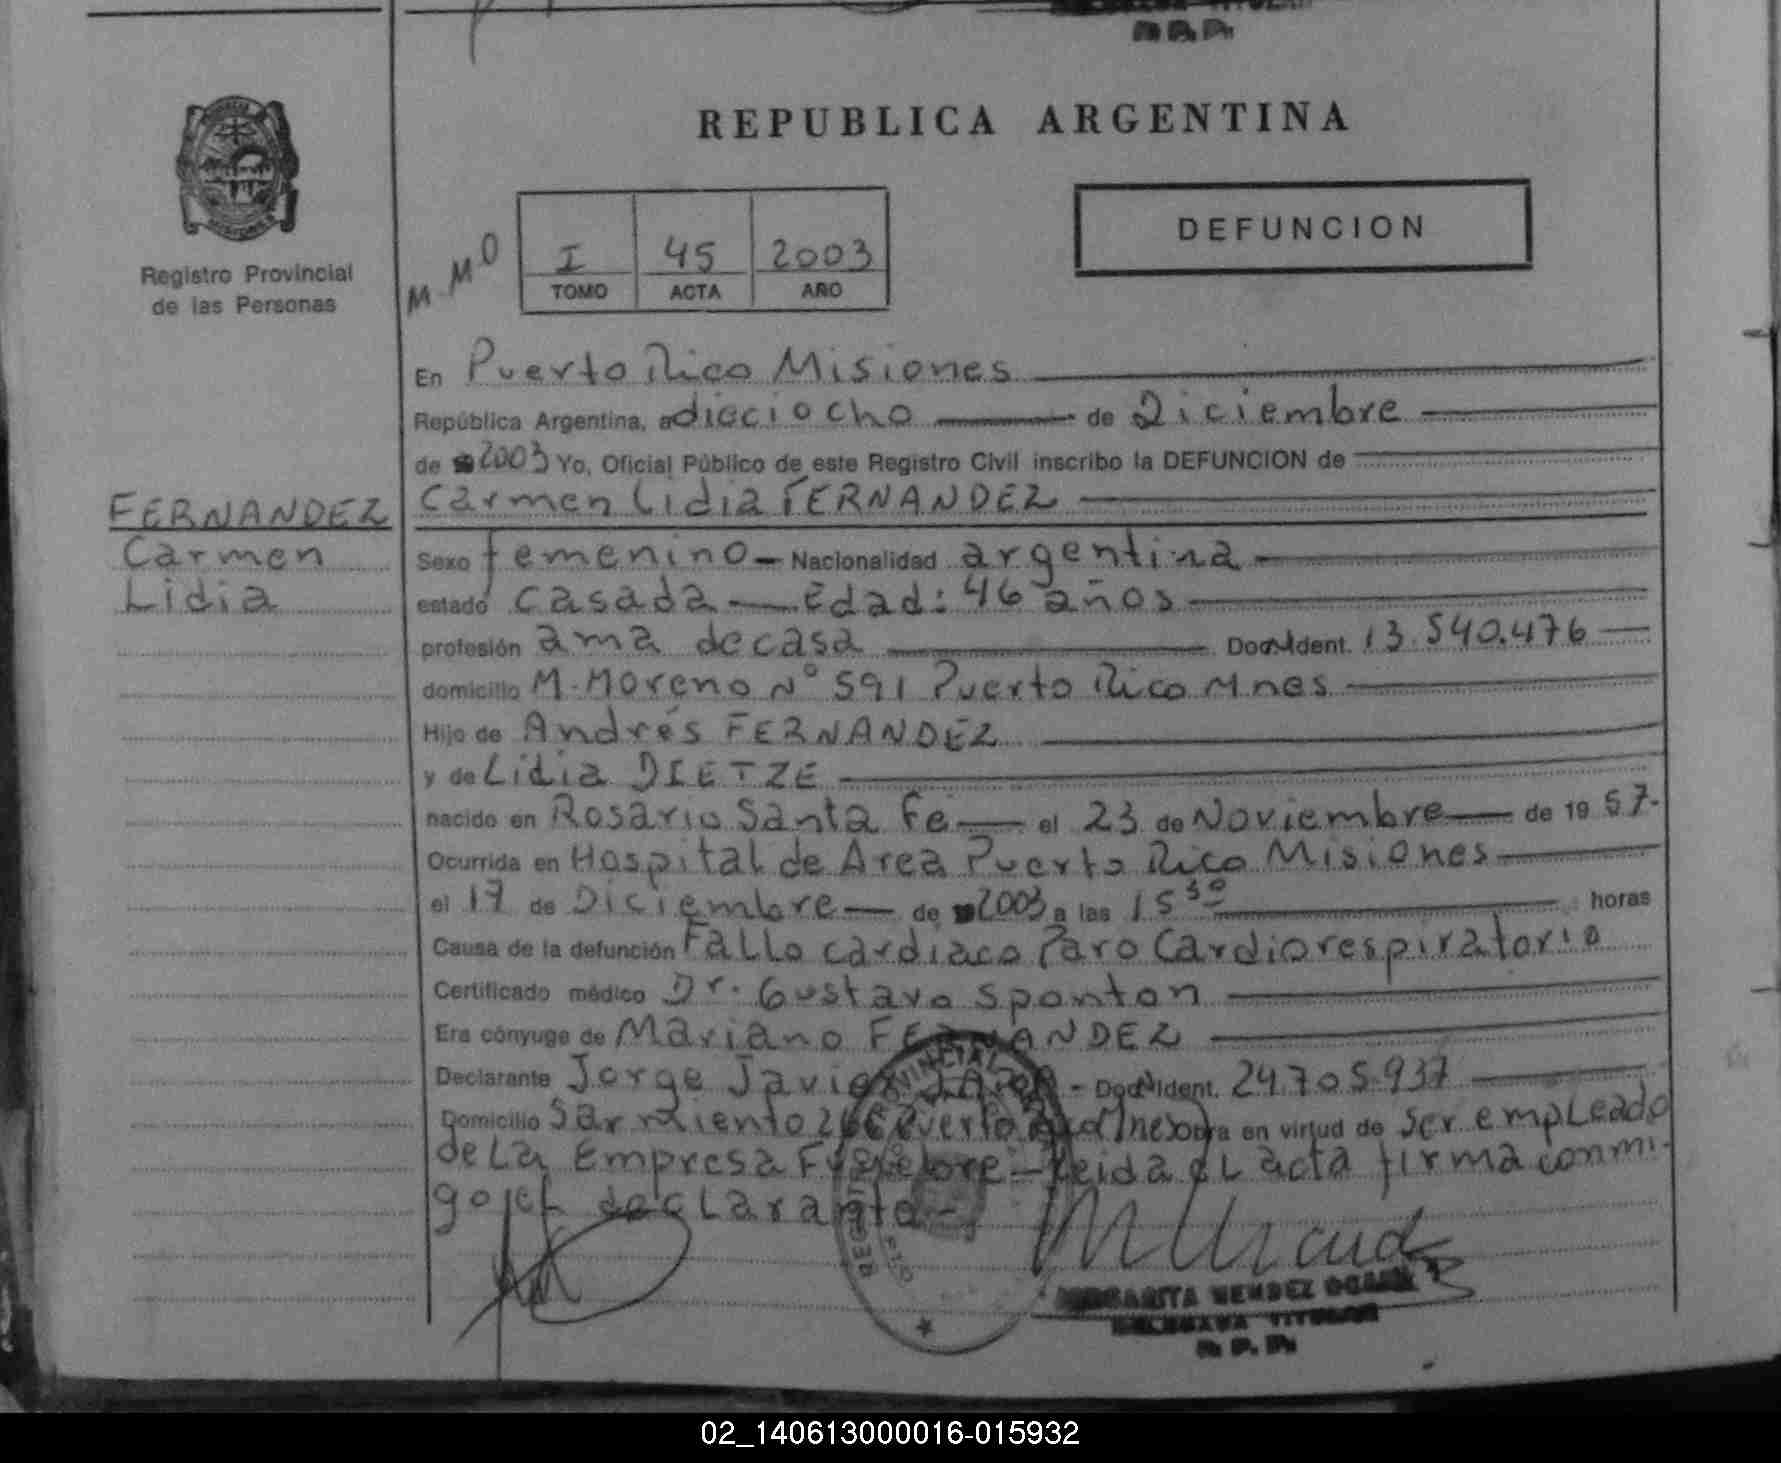 R.P.P.
REPUBLICA ARGENTINA
DEFUNCION
Registro Provincial
de las Personas
M.M.O
I 45 2003
TOMO ACTA AÑO
En Puerto Rico Misiones
República Argentina, a dieciocho de Diciembre
de 2003 Yo, Oficial Público de este Registro Civil inscribo la DEFUNCION de
FERNANDEZ
Carmen
Lidia
Carmen Lidia FERNANDEZ
Sexo femenino - Nacionalidad argentina
estado casada - Edad: 46 años
profesión ama de casa Doc. Ident. 13.540.476
domicilio M. Moreno N° 591 Puerto Rico Mnes
Hijo de Andrés FERNANDEZ
y de Lidia DIETZE
nacido en Rosario Santa Fe el 23 de Noviembre de 1957.
Ocurrida en Hospital de Area Puerto Rico Misiones
el 17 de Diciembre de 2003 a las 15 30 horas
Causa de la defunción Fallo cardiaco Paro Cardiorespiratorio
Certificado médico Dr. Gustavo Sponton
Era cónyuge de Mariano FERNANDEZ
Declarante Jorge Javier - Doc. Ident. 24.705.937
Domicilio Sarmiento Puerto Mnes Obra en virtud de ser empleado
de la Empresa - Leida el acta firma conmi-
go el declarante -
MARGARITA MENDEZ
TITULAR
R.P.P.
02_140613000016-015932